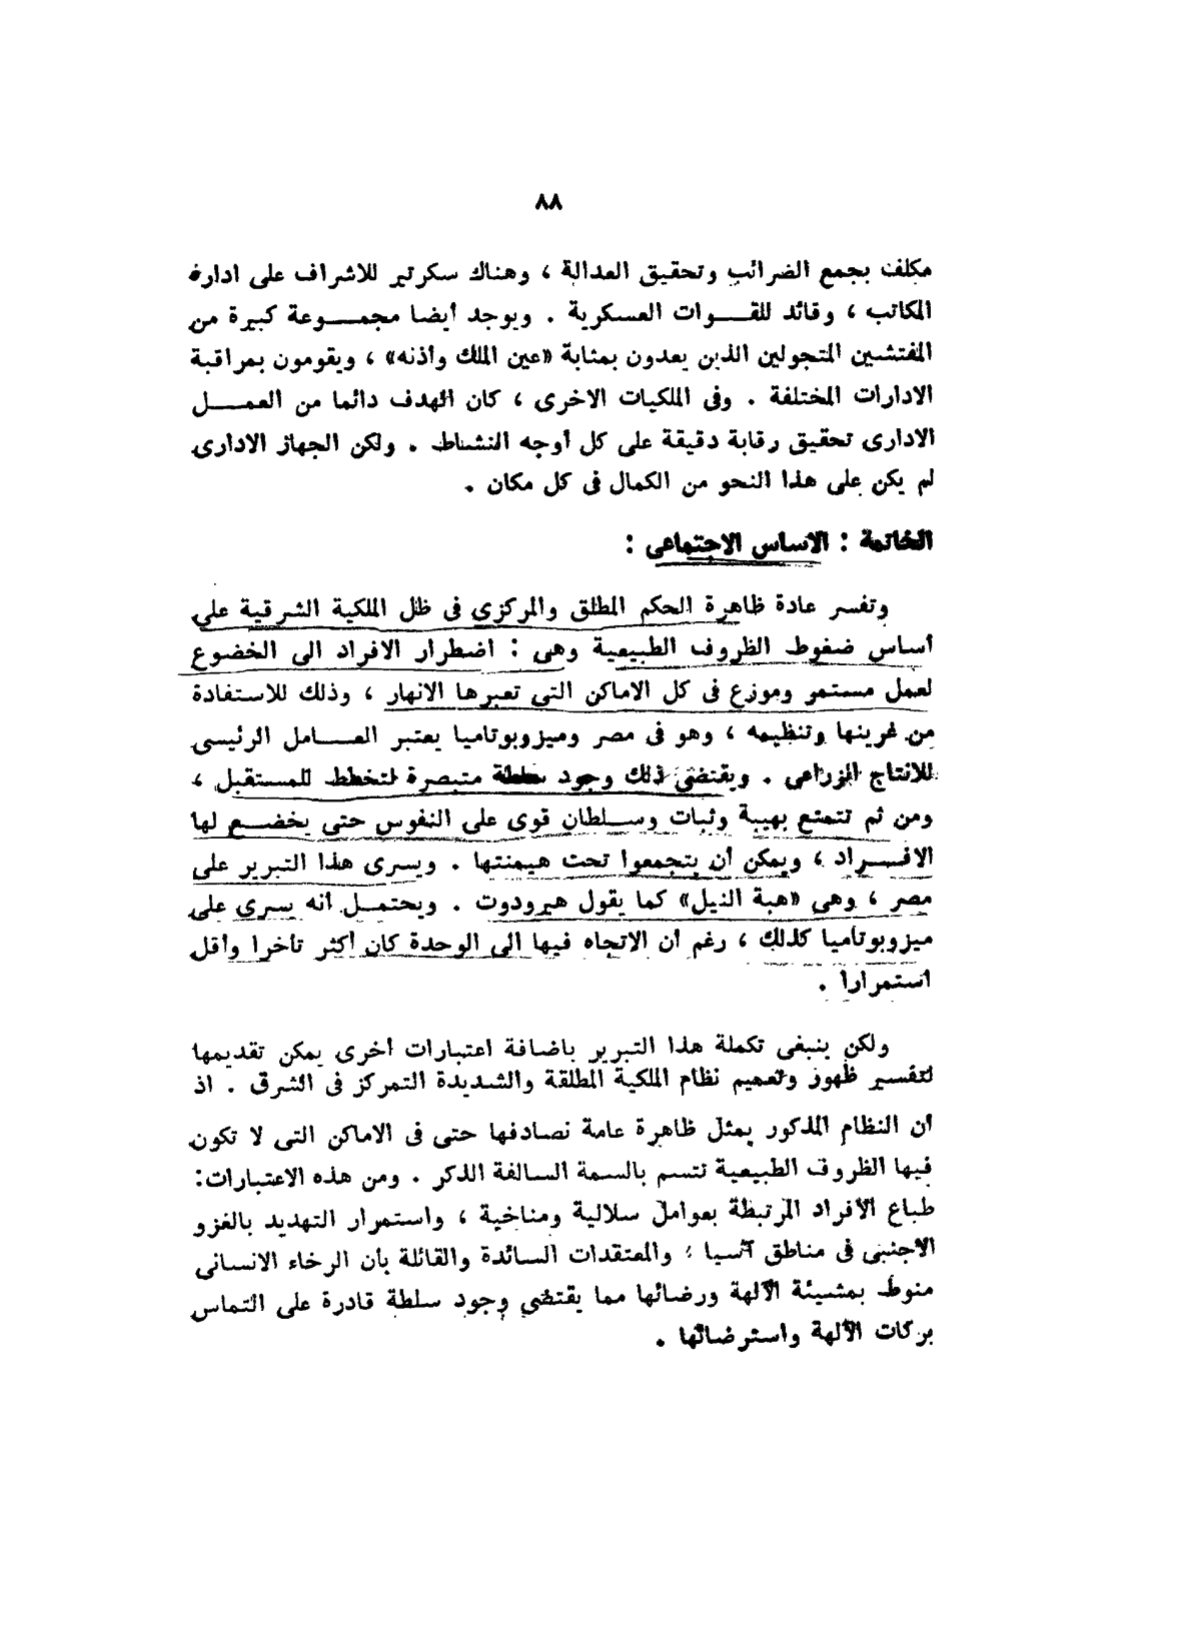 ٨٨
مكلف بجمع الضرائب وتحقيق العدالة ، وهناك سكرتير للاشراف على ادارة
المكاتب ، وقائد للقـــوات العسكرية . ويوجد أيضا مجمـــوعة كبيرة من
المفتشين المتجولين الذين يعدون بمثابة «عين الملك وأذنه» ، ويقومون بمراقبة
الادارات المختلفة . وفى الملكيات الاخرى ، كان الهدف دائما من العمـــل
الادارى تحقيق رقابة دقيقة على كل أوجه النشاط . ولكن الجهاز الادارى
لم يكن على هذا النحو من الكمال فى كل مكان .
الخاتمة : الاساس الاجتماعى :
وتفسر عادة ظاهرة الحكم المطلق والمركزى فى ظل الملكية الشرقية على
أساس ضغوط الظروف الطبيعية وهى : اضطرار الافراد الى الخضوع
لعمل مستمر وموزع فى كل الاماكن التى تعبرها الانهار ، وذلك للاستفادة
من غرينها وتنظيمه ، وهو فى مصر وميزوبوتاميا يعتبر العـــامل الرئيسى
للانتاج الزراعى . ويقتضى ذلك وجود سلطة متبصرة لتخطط للمستقبل ،
ومن ثم تتمتع بهيبة وثبات وســلطان قوى على النفوس حتى يخضـــع لها
الافـــراد ، ويمكن أن يتجمعوا تحت هيمنتها . ويسرى هذا التبرير على
مصر ، وهى «هبة النيل» كما يقول هيرودوت . ويحتمــل أنه يسرى على
ميزوبوتاميا كذلك ، رغم أن الاتجاه فيها الى الوحدة كان أكثر تأخرا وأقل
استمرارا .
ولكن ينبغى تكملة هذا التبرير باضافة اعتبارات أخرى يمكن تقديمها
لتفسير ظهور وتعميم نظام الملكية المطلقة والشديدة التمركز فى الشرق . اذ
أن النظام المذكور يمثل ظاهرة عامة نصادفها حتى فى الاماكن التى لا تكون
فيها الظروف الطبيعية تتسم بالسمة السالفة الذكر . ومن هذه الاعتبارات:
طباع الأفراد المرتبطة بعوامل سلالية ومناخية ، واستمرار التهديد بالغزو
الاجنبى فى مناطق آسيا ؛ والمعتقدات السائدة والقائلة بأن الرخاء الانسانى
منوط بمشيئة الآلهة ورضائها مما يقتضى وجود سلطة قادرة على التماس
بركات الآلهة واسترضائها .